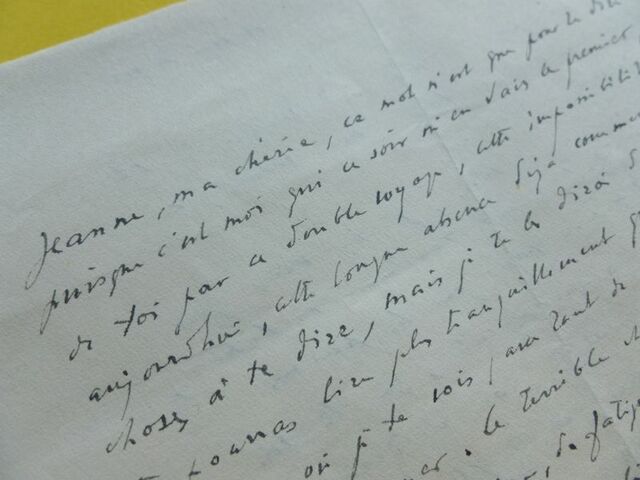 Jeanne, ma chérie, ce mot n'est que pour te dire
puisque c'est moi qui ce soir m'en vais le premier,
de toi par ce double voyage, cette impossibilité
aujourd'hui, cette longue absence déjà comme
choses à te dire, mais je te les dirai
pourras lire plus tranquillement
où je te vois, avec tant de
le terrible